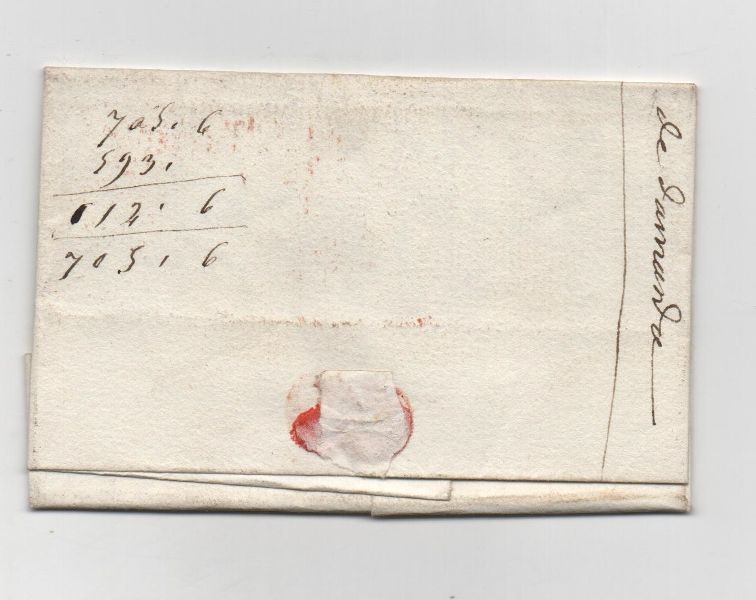 705. 6
593.
112. 6
705. 6
de damande